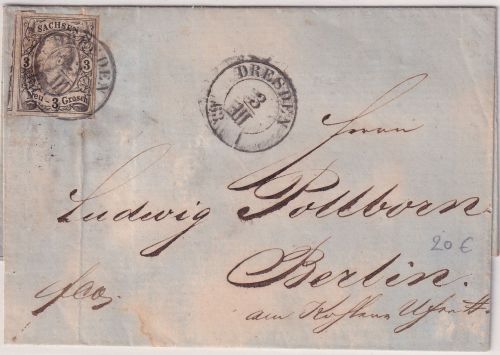 SACHSEN
3 3
Neu-3 Grosch
DRESDEN
3
III
Herrn
Ludwig Pollborn
20 €
Berlin.
am
franco.